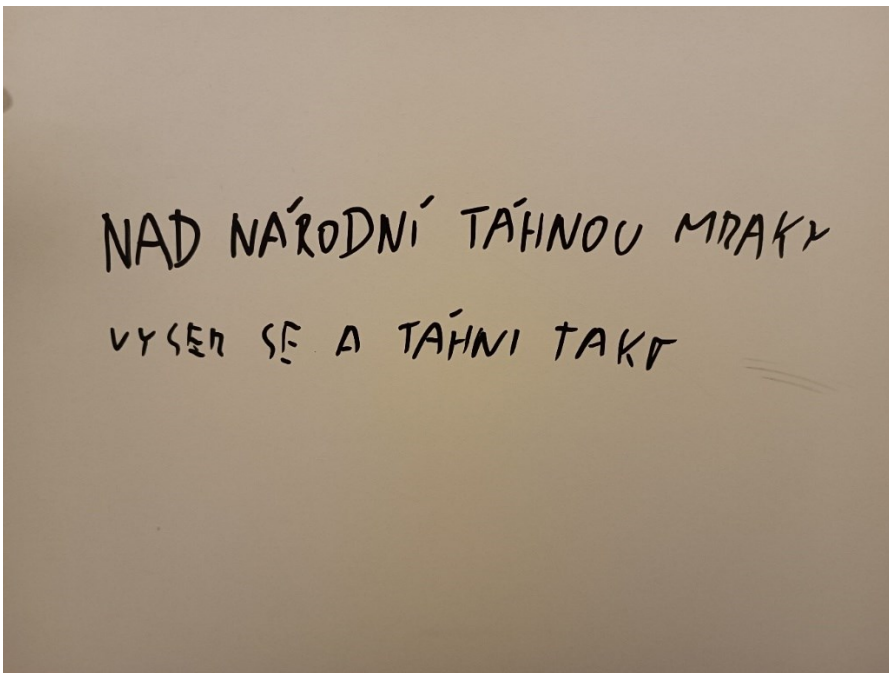 NAD NÁRODNÍ TÁHNOU MRAKY
VYSER SE A TÁHNI TAKY